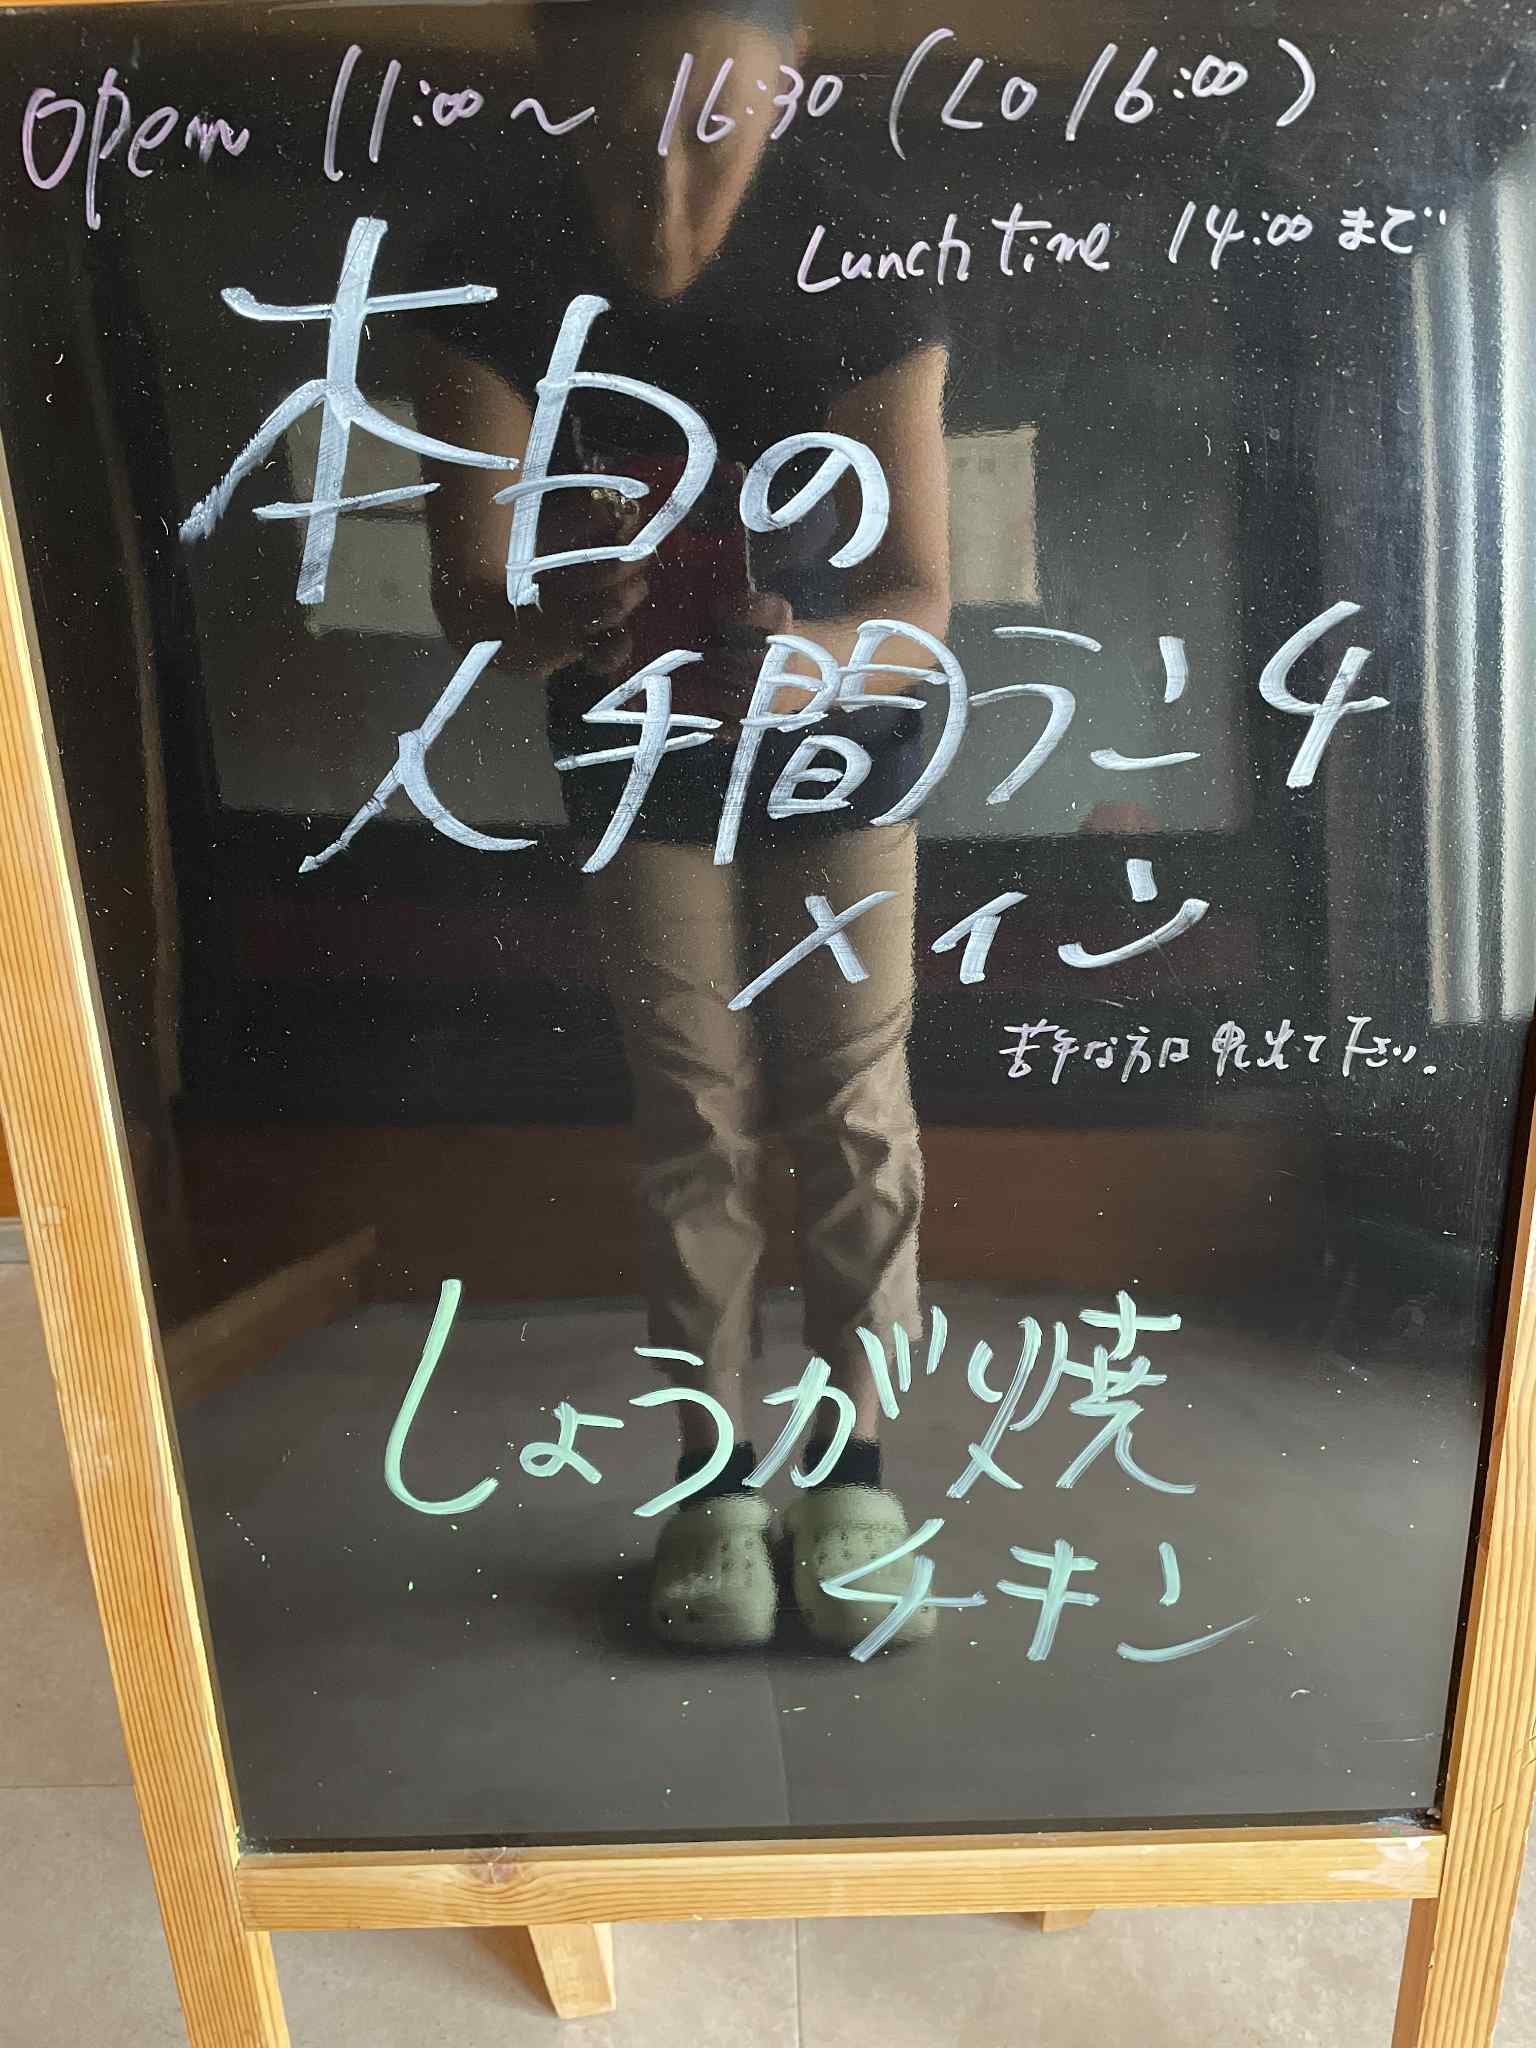 open 11:00～16:30(LO16:00)
Lunch time 14:00まで
本日の
人手間ランチ
メイン
苦手な方は申し出て下さい。
しょうが焼
チキン